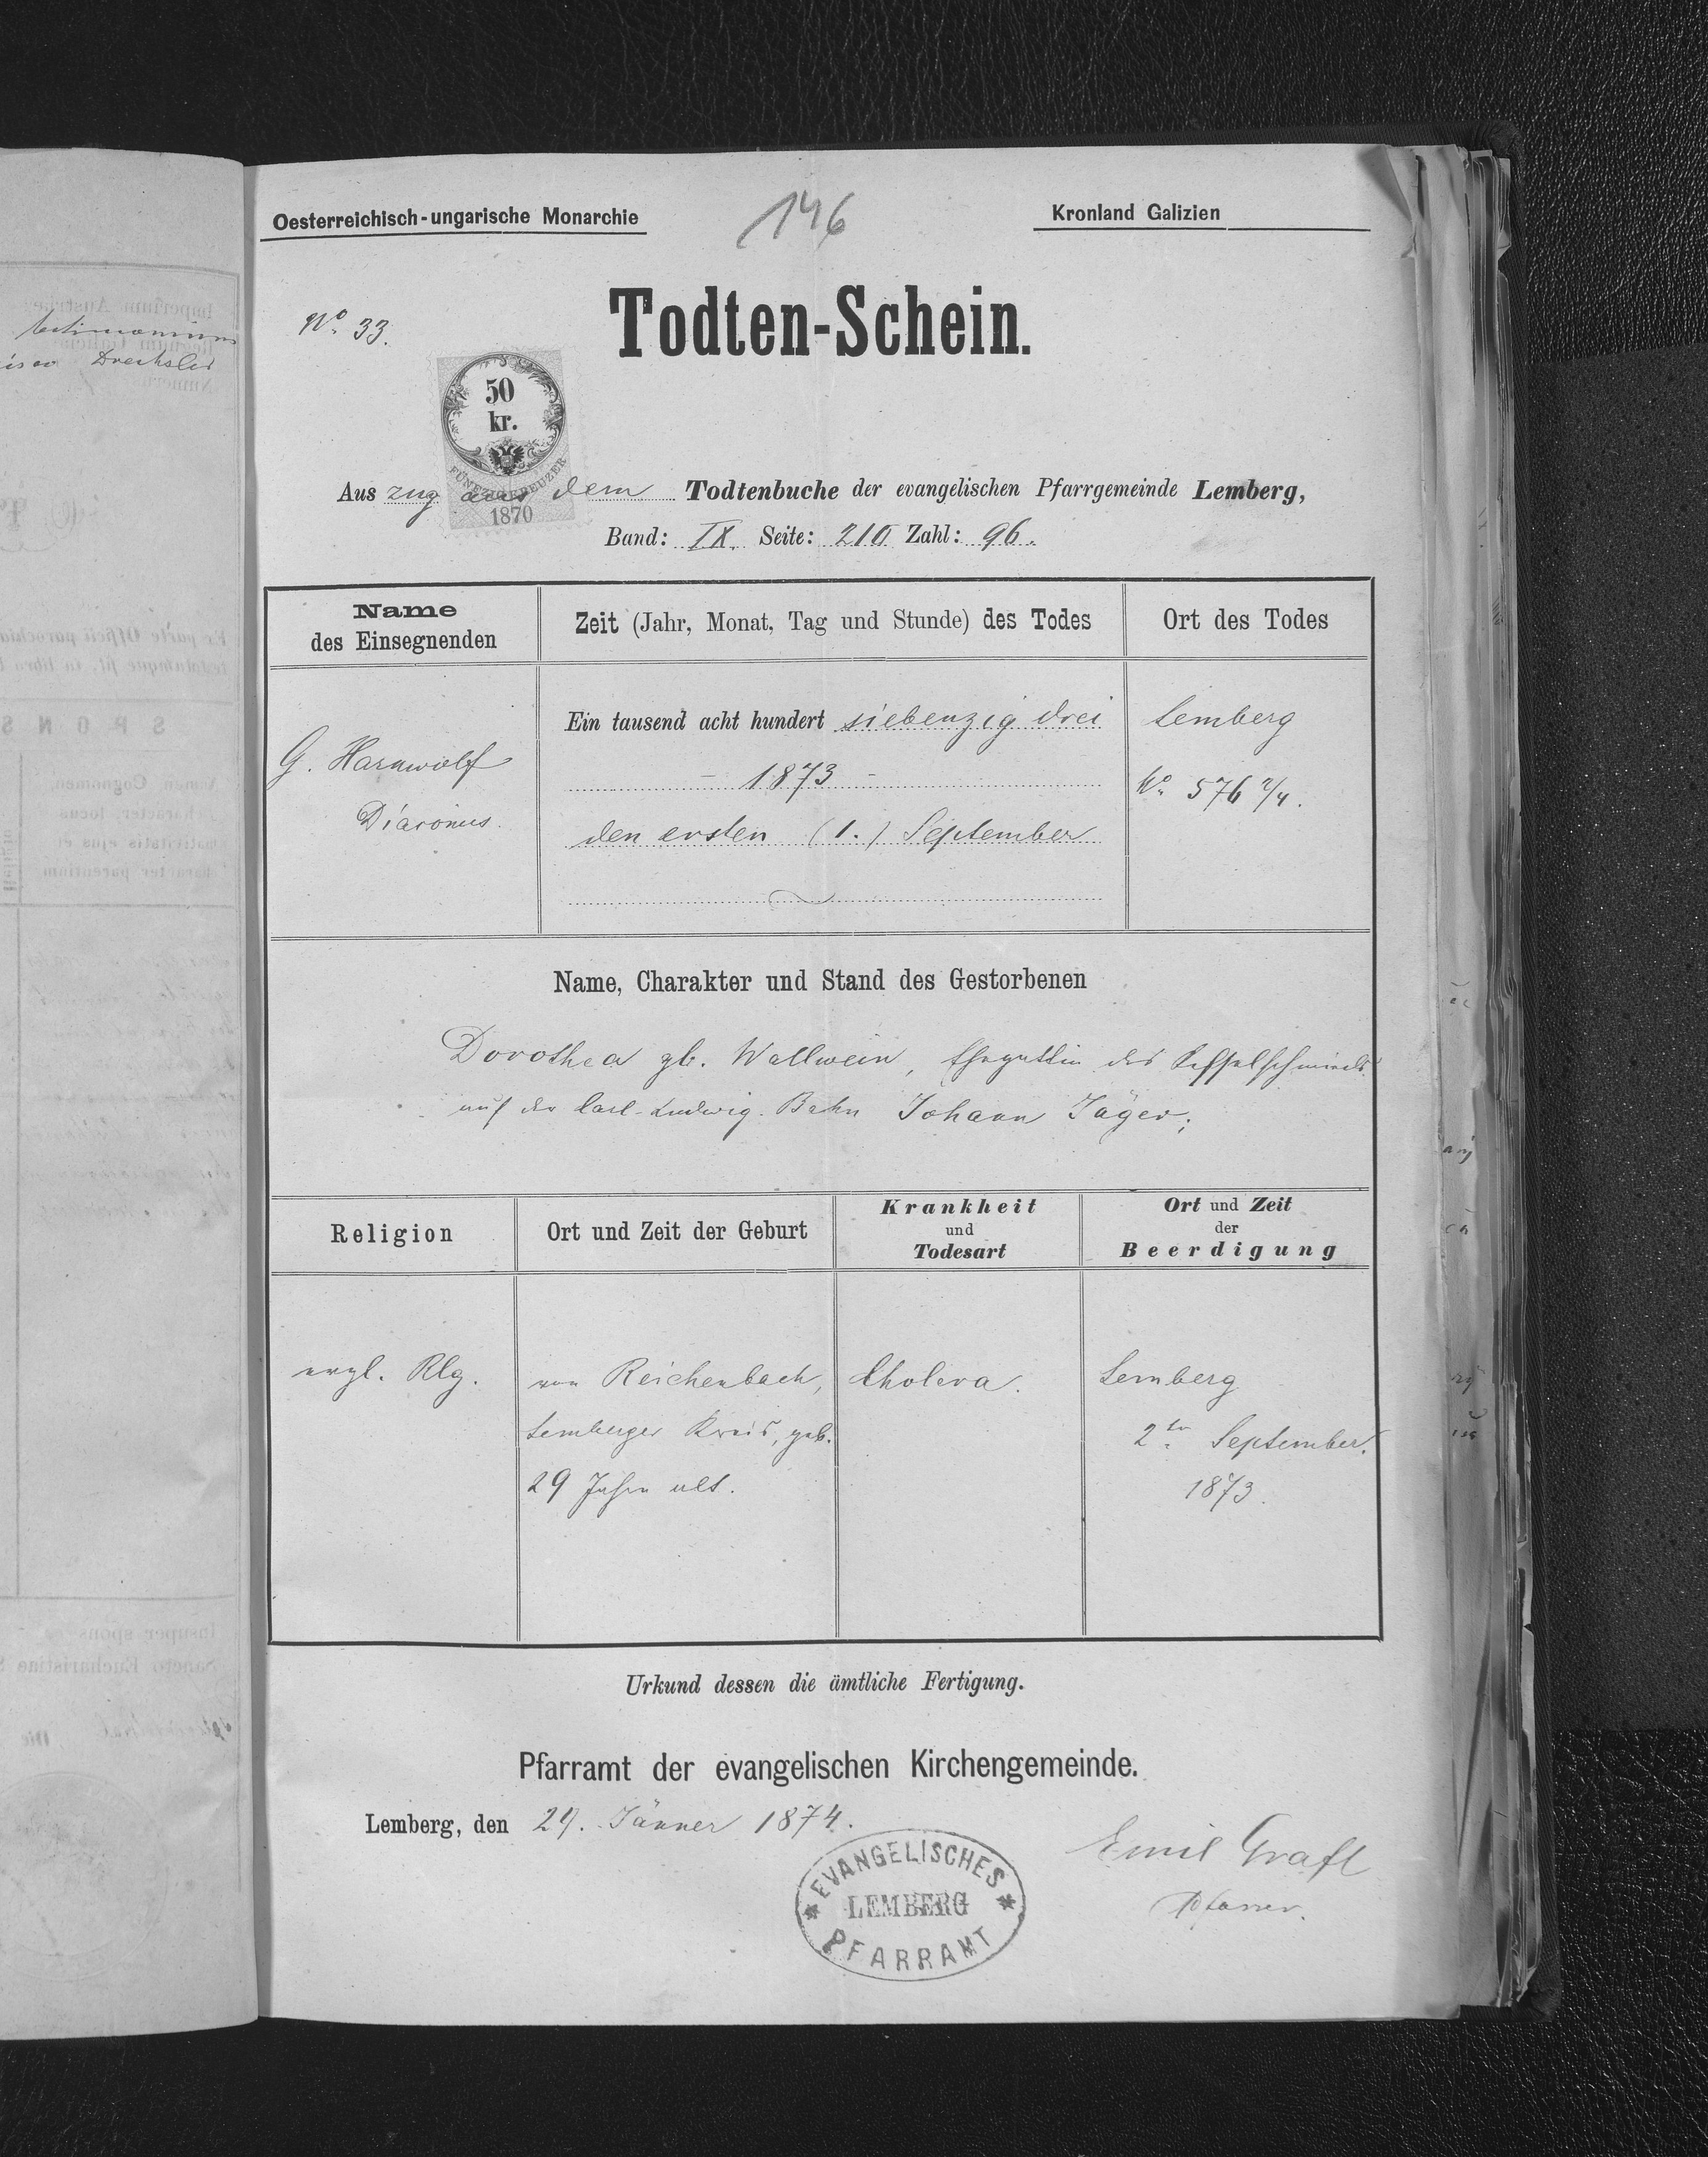 Oesterreichisch-ungarische Monarchie
146
Kronland Galizien
No. 33.
Todten-Schein.
50
kr.
FÜNFZIG KREUZER
1870
Auszug aus dem Todtenbuche der evangelischen Pfarrgemeinde Lemberg,
Band: IX. Seite: 210 Zahl: 96.
Name
des Einsegnenden
Zeit (Jahr, Monat, Tag und Stunde) des Todes
Ort des Todes
G. Harnwolf
Diaconus.
Ein tausend acht hundert siebenzig drei
– 1873 –
den ersten (1.) September
Lemberg
No. 576 2/4.
Name, Charakter und Stand des Gestorbenen
Dorothea gb. Wallwein, Ehegattin des Kesselschmieds
auf der Carl-Ludwig-Bahn Johann Jäger;
Religion
Ort und Zeit der Geburt
Krankheit
und
Todesart
Ort und Zeit
der
Beerdigung
evgl. Rlg.
von Reichenbach,
Lemberger Kreis, geb.
29 Jahre alt.
Cholera.
Lemberg
2ten September.
1873.
Urkund dessen die ämtliche Fertigung.
Pfarramt der evangelischen Kirchengemeinde.
Lemberg, den 29. Jänner 1874.
EVANGELISCHES
LEMBERG
PFARRAMT
Emil Grafl
Pfarrer.